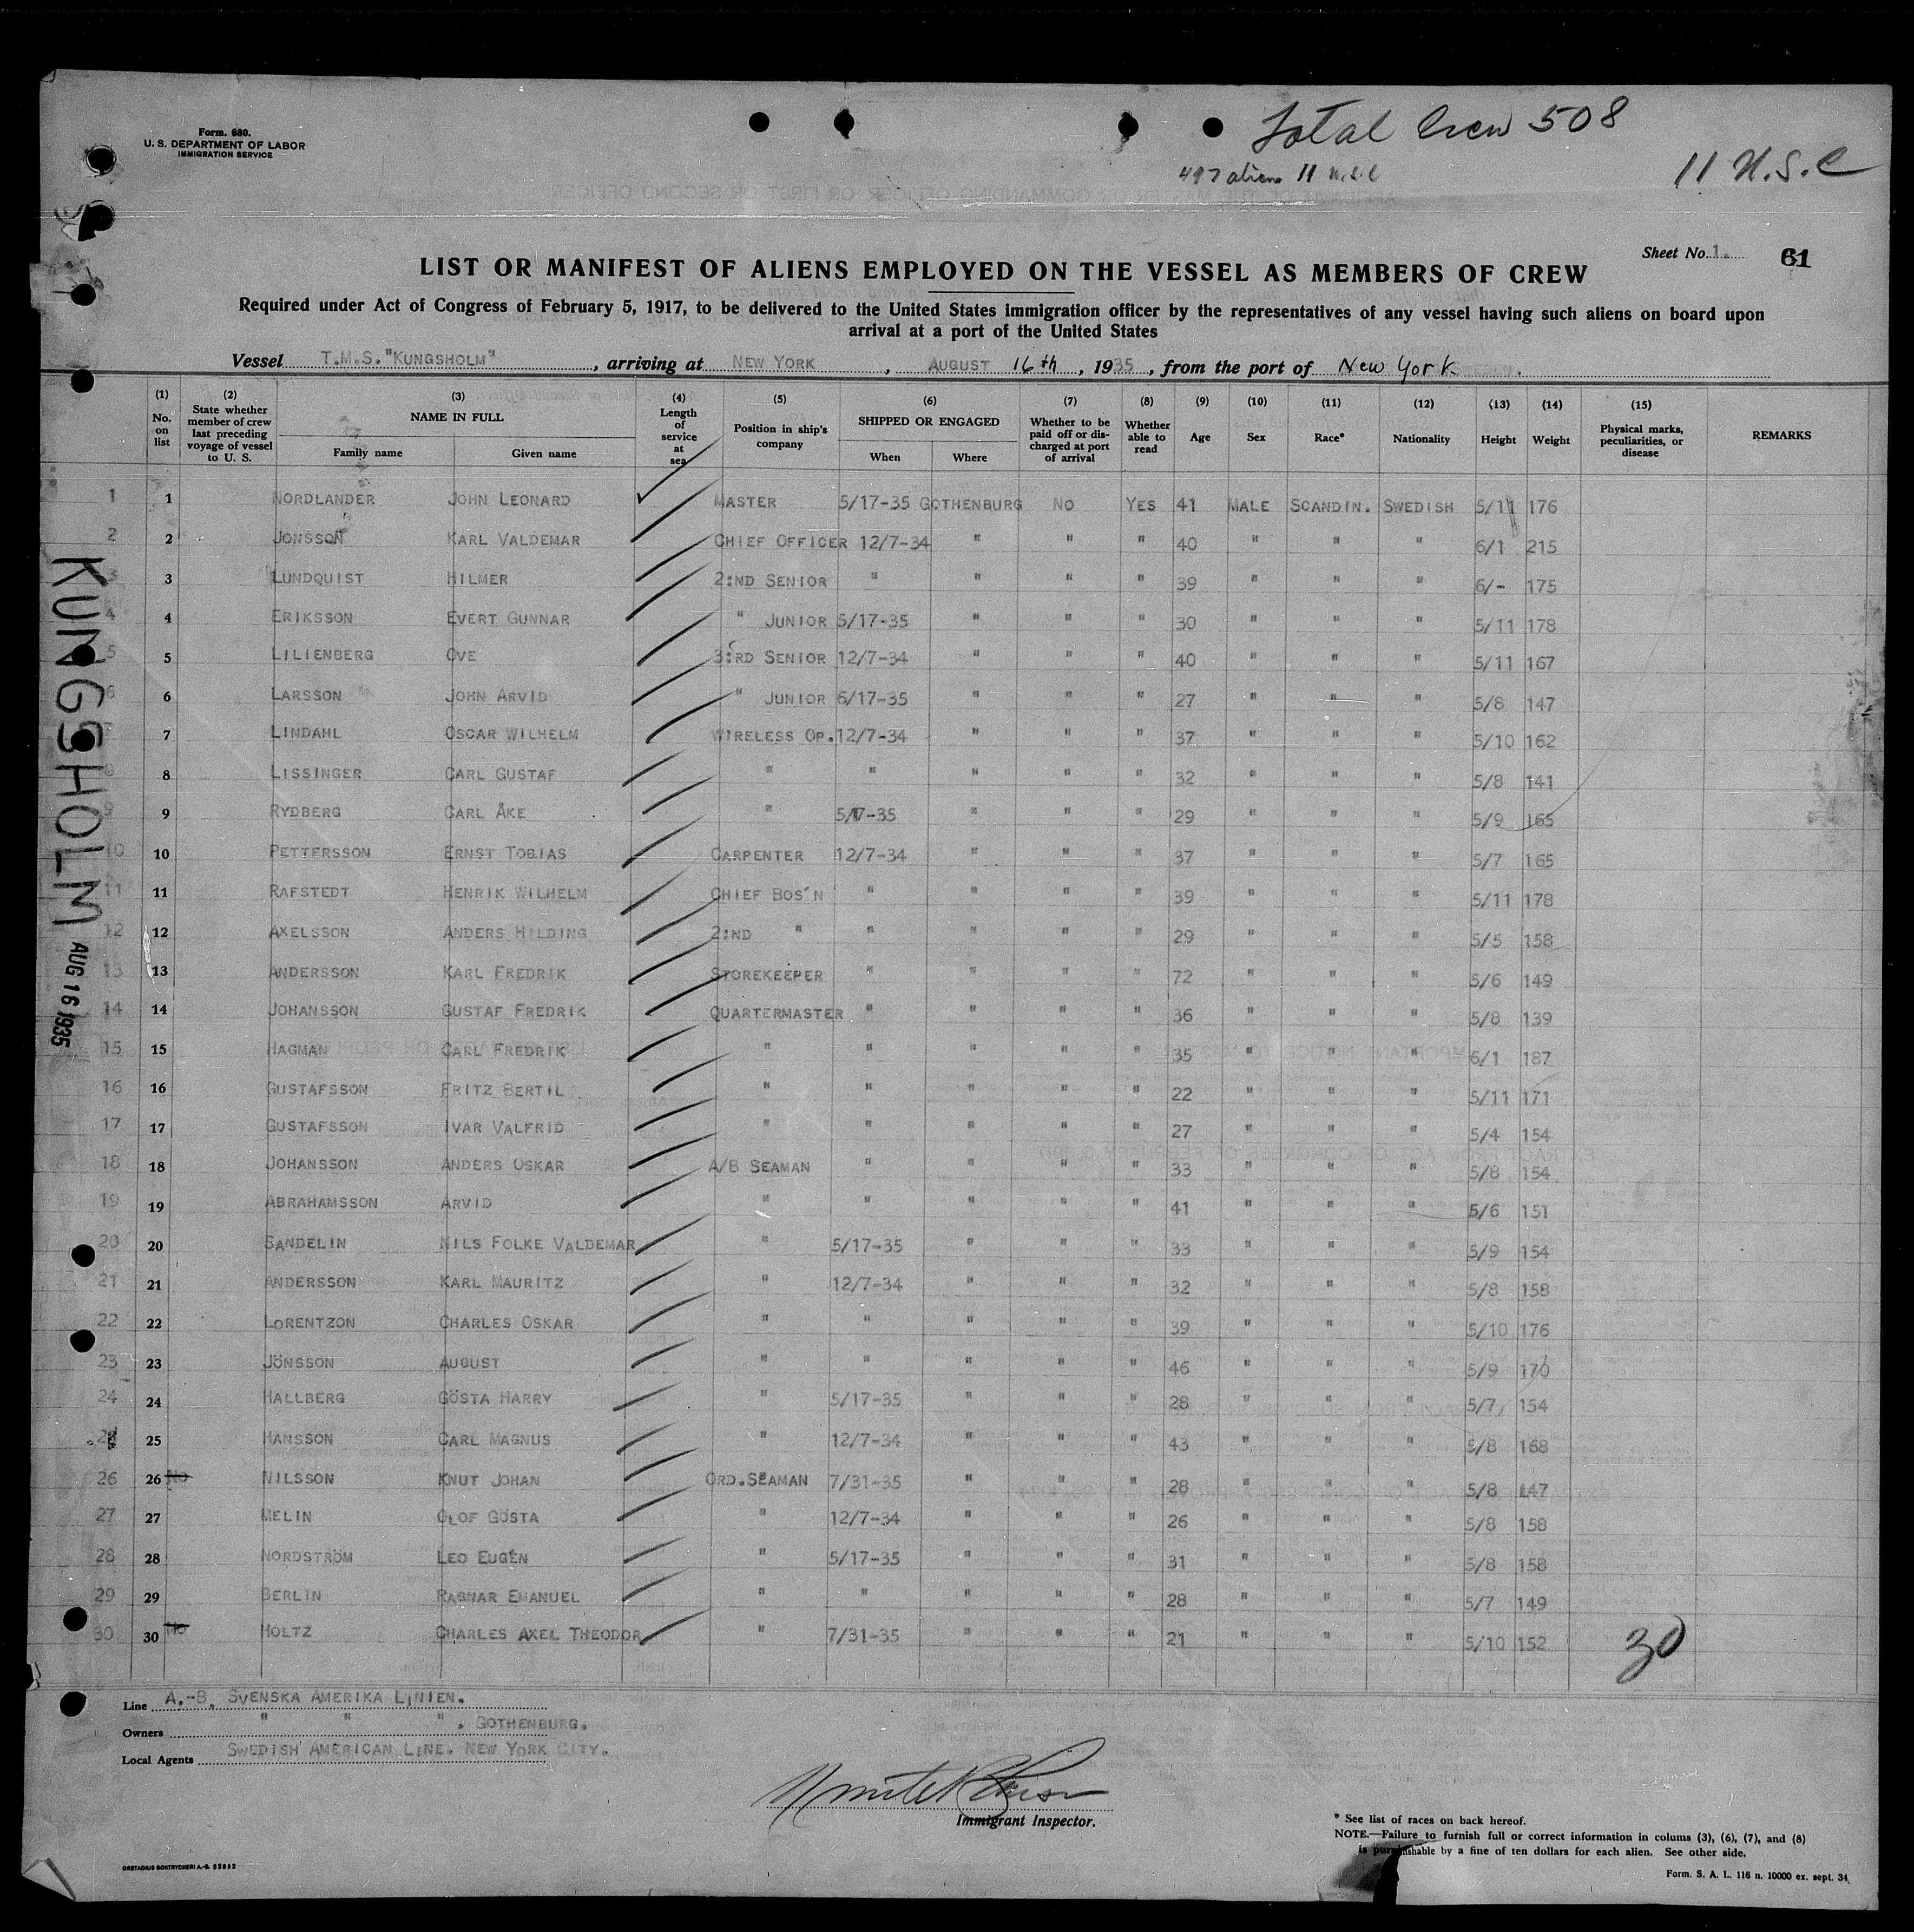 Form. 680.
U. S. DEPARTMENT OF LABOR
IMMIGRATION SERVICE
Total Crew 508
497 aliens 11 U.S.C
11 U.S.C
Sheet No. 1. 61
LIST OR MANIFEST OF ALIENS EMPLOYED ON THE VESSEL AS MEMBERS OF CREW
Required under Act of Congress of February 5, 1917, to be delivered to the United States immigration officer by the representatives of any vessel having such aliens on board upon
arrival at a port of the United States
Vessel T.M.S. "KUNGSHOLM", arriving at NEW YORK, AUGUST 16th, 1935, from the port of New York.
(1) No. on list (2) State whether member of crew last preceding voyage of vessel to U. S. (3) NAME IN FULL Family name Given name (4) Length of service at sea (5) Position in ship's company (6) SHIPPED OR ENGAGED When Where (7) Whether to be paid off or discharged at port of arrival (8) Whether able to read (9) Age (10) Sex (11) Race* (12) Nationality (13) Height (14) Weight (15) Physical marks, peculiarities, or disease REMARKS
1 1 NORDLANDER JOHN LEONARD MASTER 5/17-35 GOTHENBURG NO YES 41 MALE SCANDIN. SWEDISH 5/11 176
2 2 JONSSON KARL VALDEMAR CHIEF OFFICER 12/7-34 " " " 40 " " " 6/1 215
3 3 LUNDQUIST HILMER 2:ND SENIOR " " " " 39 " " " 6/- 175
4 4 ERIKSSON EVERT GUNNAR " JUNIOR 5/17-35 " " " 30 " " " 5/11 178
5 5 LILIENBERG OVE 3:RD SENIOR 12/7-34 " " " 40 " " " 5/11 167
6 6 LARSSON JOHN ARVID " JUNIOR 6/17-35 " " " 27 " " " 5/8 147
7 LINDAHL OSCAR WILHELM WIRELESS OP. 12/7-34 " " " 37 " " " 5/10 162
8 8 LISSINGER CARL GUSTAF " " " " " 32 " " " 5/8 141
9 9 RYDBERG CARL ÅKE " 5/17-35 " " " 29 " " " 5/9 165
10 10 PETTERSSON ERNST TOBIAS CARPENTER 12/7-34 " " " 37 " " " 5/7 165
11 11 RAFSTEDT HENRIK WILHELM CHIEF BOS'N " " " " 39 " " " 5/11 178
12 12 AXELSSON ANDERS HILDING 2:ND " " " " " 29 " " " 5/5 158
13 13 ANDERSSON KARL FREDRIK STOREKEEPER " " " " 72 " " " 5/6 149
14 14 JOHANSSON GUSTAF FREDRIK QUARTERMASTER " " " " 36 " " " 5/8 139
15 15 HAGMAN CARL FREDRIK " " " " " 35 " " " 6/1 187
16 16 GUSTAFSSON FRITZ BERTIL " " " " " 22 " " " 5/11 171
17 17 GUSTAFSSON IVAR VALFRID " " " " " 27 " " " 5/4 154
18 18 JOHANSSON ANDERS OSKAR A/B SEAMAN " " " " 33 " " " 5/8 154
19 19 ABRAHAMSSON ARVID " " " " " 41 " " " 5/6 151
20 20 SANDELIN NILS FOLKE VALDEMAR " 5/17-35 " " " 33 " " " 5/9 154
21 21 ANDERSSON KARL MAURITZ " 12/7-34 " " " 32 " " " 5/8 158
22 22 LORENTZON CHARLES OSKAR " " " " " 39 " " " 5/10 176
23 23 JÖNSSON AUGUST " " " " " 46 " " " 5/9 170
24 24 HALLBERG GÖSTA HARRY " 5/17-35 " " " 28 " " " 5/7 154
25 HANSSON CARL MAGNUS " 12/7-34 " " " 43 " " " 5/8 168
26 26 No NILSSON KNUT JOHAN ORD. SEAMAN 7/31-35 " " " 28 " " " 5/8 147
27 27 MELIN OLOF GÖSTA " 12/7-34 " " " 26 " " " 5/8 158
28 28 NORDSTRÖM LEO EUGÉN " 5/17-35 " " " 31 " " " 5/8 158
29 29 BERLIN RAGNAR EMANUEL " " " " " 28 " " " 5/7 149
30 30 No HOLTZ CHARLES AXEL THEODOR " 7/31-35 " " " 21 " " " 5/10 152
30
KUNGSHOLM AUG 16 1935
Line A.-B. SVENSKA AMERIKA LINIEN.
Owners " " ". GOTHENBURG.
Local Agents SWEDISH AMERICAN LINE. NEW YORK CITY.
Immigrant Inspector.
* See list of races on back hereof.
NOTE.—Failure to furnish full or correct information in colums (3), (6), (7), and (8)
is punishable by a fine of ten dollars for each alien. See other side.
Form. S. A. L. 116 n. 10000 ex. sept. 34